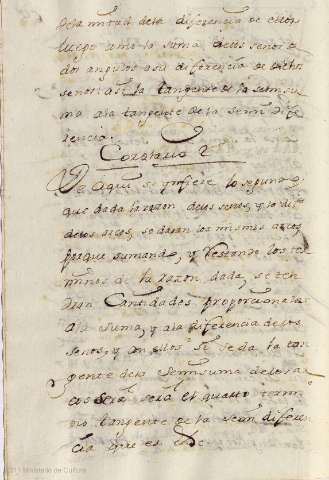 de la mitad de la diferencia de ellos
luego como la suma de los senos de
dos angulos a su diferencia de dichos
senos: assi la tangente de la semisu
ma a la tangente de la semi dife
rencia.
Corolario 2º
De aqui se infiere lo segundo
que dada la razon de los senos, y la
de los arcos, se daran los mismos arcos
porque sumando, y restando los ter
minos de la razon dada, se ten
dran Cantidades proporcionales
a la suma, y a la diferencia de los
senos, y con ellos si se da la tan
gente de la semisuma de los ar
cos sera el quarto termi
no tangente de la semi diferen
cia que es
2011 Ministerio de Cultura